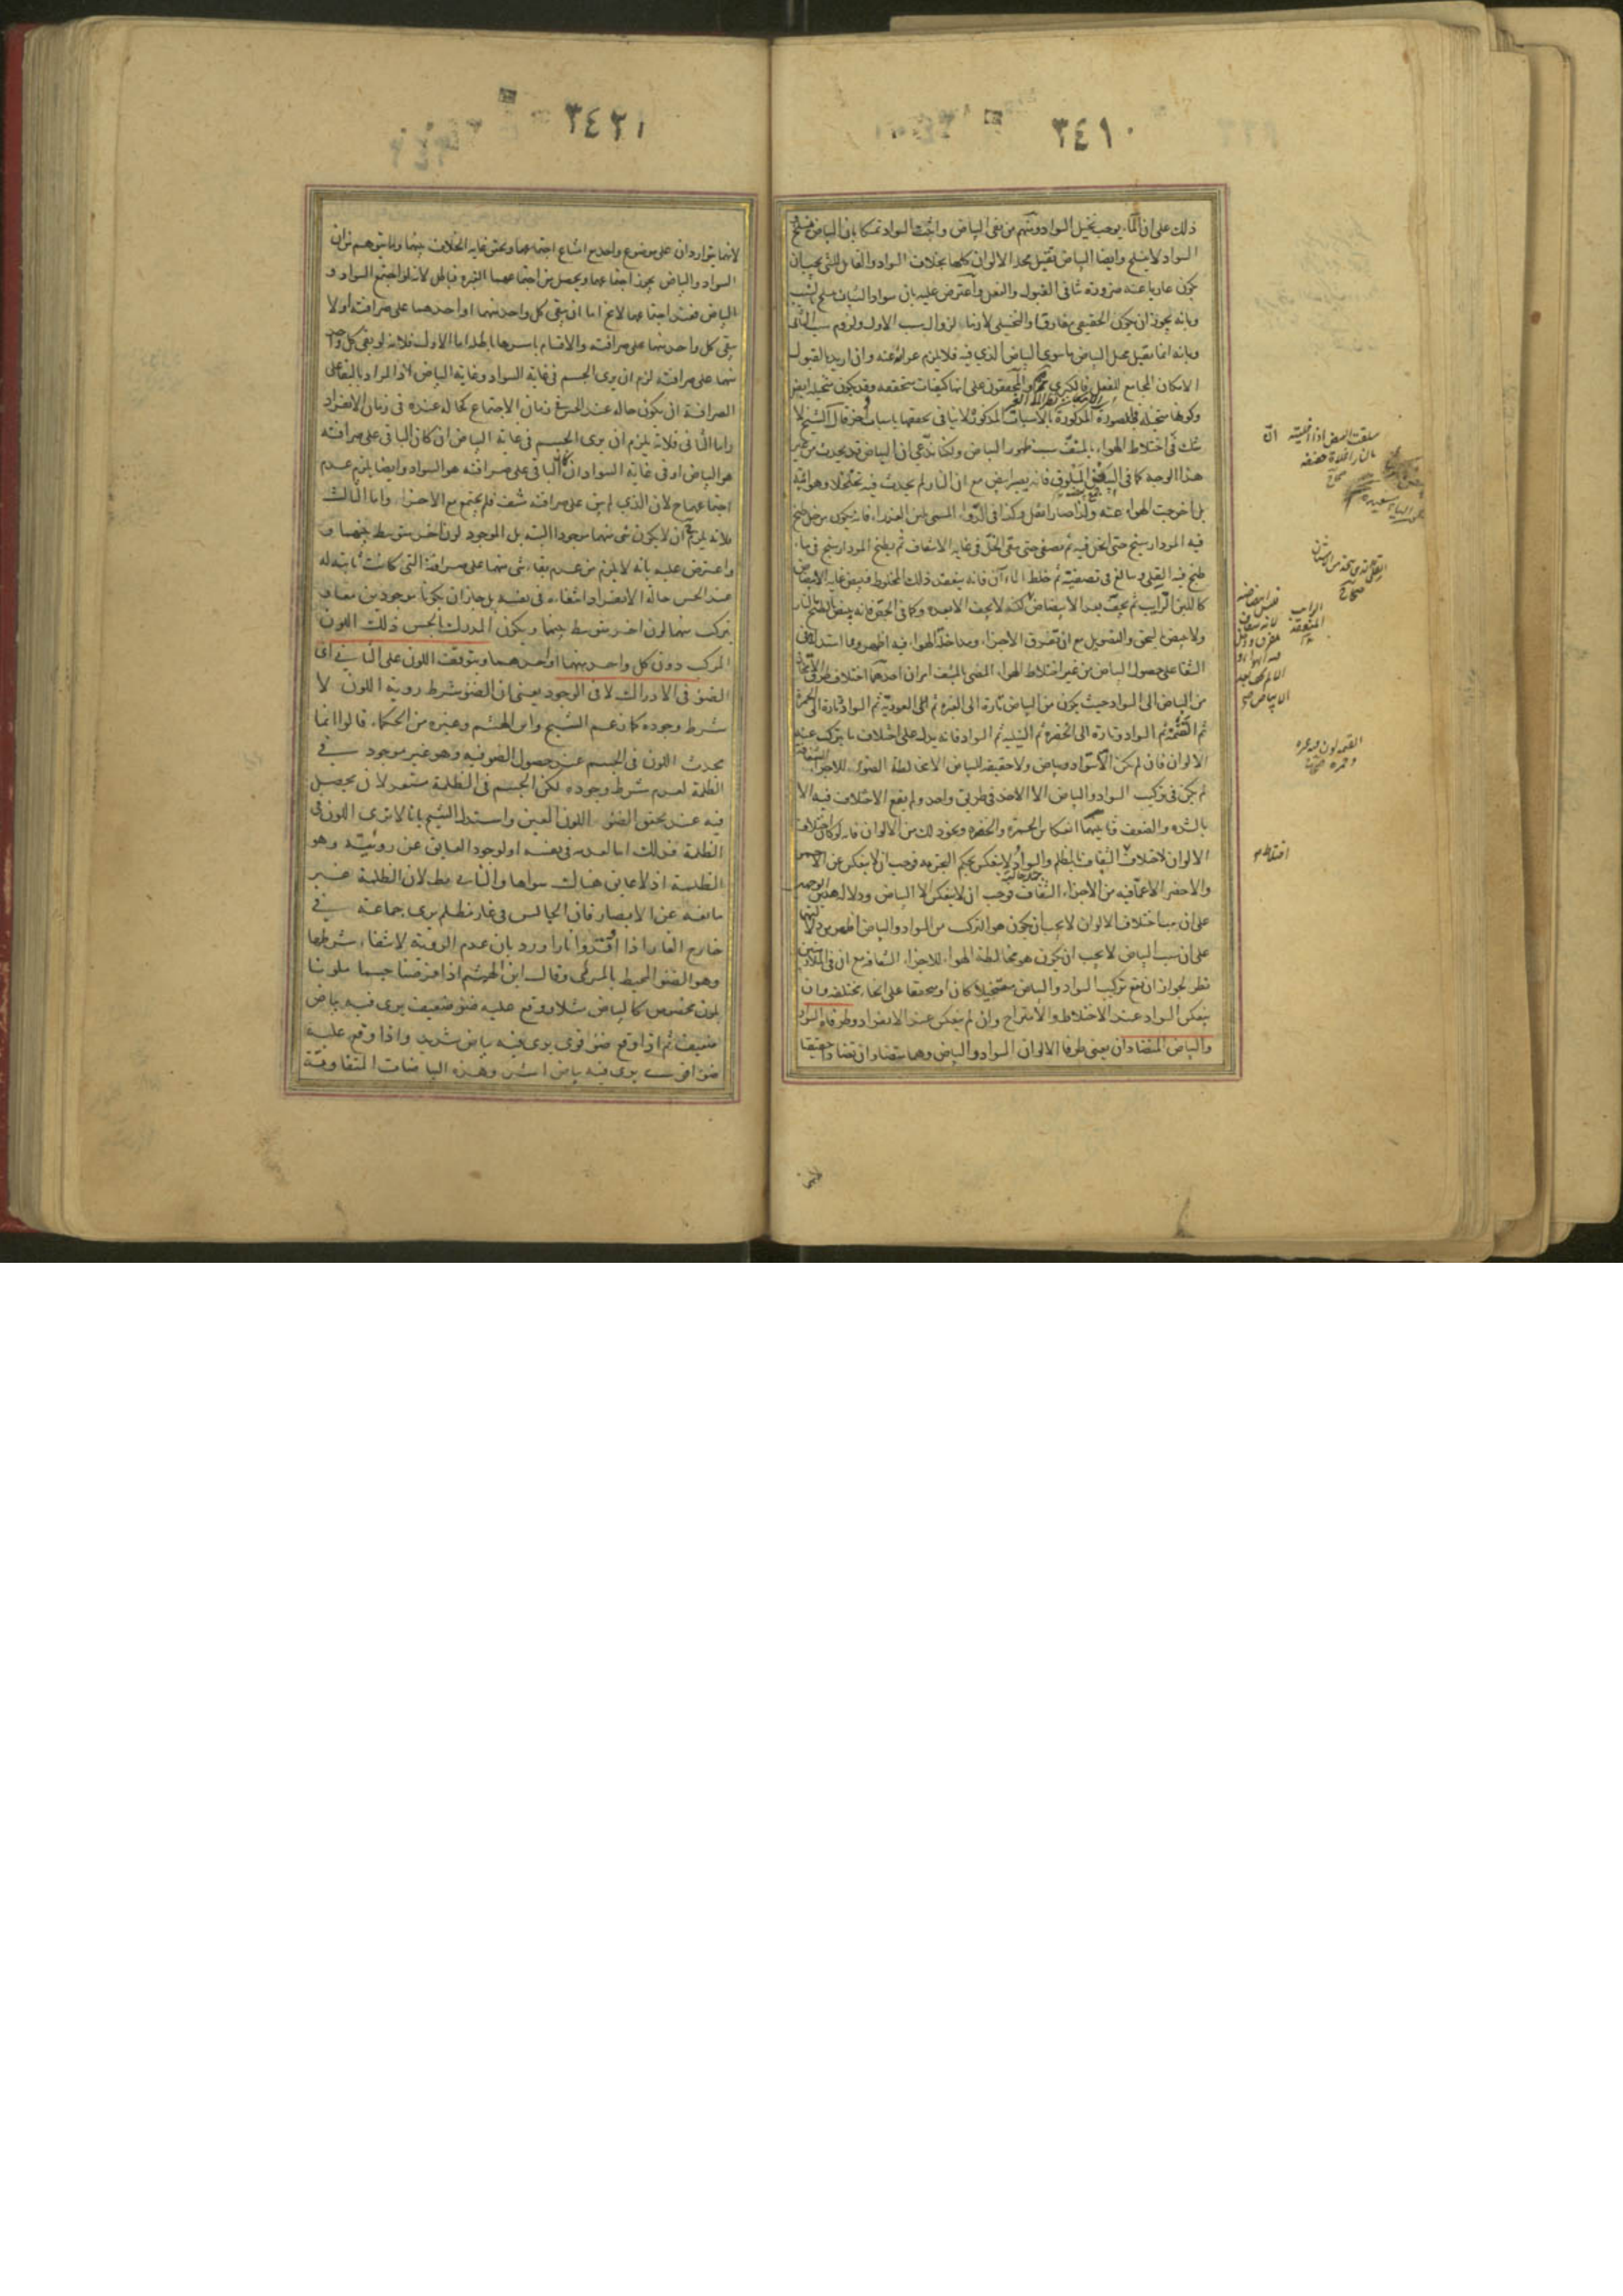 ٣٤١٠
ذلك على ان الماء يوجب تخيل السواد ومنهم من نفى البياض واثبت السواد تمسكا بان البياض ينسلخ
السواد لا ينسلخ وايضا البياض يقبل محله الالوان كلها بخلاف السواد والقابل للشئ يجب ان
يكون عاريا عنه ضرورة تنافى القبول والفعل واعترض عليه بان سواد الشباب ينسلخ بالشيب
وبانه يجوز ان يكون الحقيقى مفارقا والتخيلى لازما لزوال سبب الاول ولزوم سبب الثانى
وبانه انما يقبل محل البياض ما سوى البياض الذى فيه فلا يلزم عراؤه عنه وان اريد بالقبول
الامكان المجامع للفعل فالكبرى والمحققون على انها كيفيات متحققة وقد يكون متخيلة ايضا
وكونها متخيلة فى الصورة المذكورة بالاسباب المذكورة لا ينافى تحققها باسباب اخر قال الشيخ لا
شك فى اختلاط الهواء بالمشف سبب لظهور البياض ولكنا ندعى ان البياض قد يحدث من غير
هذا الوجه كما فى البيض المسلوق فانه يصير ابيض مع ان النار لم يحدث فيه تخلخلا وهوائية
بل اخرجت الهواء عنه ولهذا صار اثقل وكذا فى الدواء المسمى بلبن العذراء فانه يكون من خل طبخ
فيه المرداسنج حتى انحل فيه ثم يصفى حتى يبقى الخل فى غاية الاشفاف ثم يطبخ المرداسنج فى ماء
طبخ فيه القلى ويبالغ فى تصفيته ثم خلط الماء آن فانه ينعقد ذلك المخلوط فيبيض غاية الابيضاض
كاللبن الرايب ثم يجف بعد الابيضاض لكنه لا يجف الا بعده وكما فى الجص فانه يبيض بالطبخ بالنار
ولا يبيض بالسحق والتصويل مع ان تفرق الاجزاء ومداخلة الهواء فيه اظهر ومما استدل به فى
الشفا على حصول البياض من غير اختلاط الهواء المضى بالمشف امران احدهما اختلاف طرق الاتجاه
من البياض الى السواد حيث يكون من البياض تارة الى الغبرة ثم الى العودية ثم السواد وتارة الى الحمرة
ثم القتمة ثم السواد وتارة الى الخضرة ثم النيلية ثم السواد فانه يدل على اختلاف ما يتركب عنه
الالوان فان لم يكن الا سواد وبياض ولا حقيقة للبياض الا مخالطة الضوء للاجزاء الشفافة
لم يكن فى تركيب السواد والبياض الا الاخذ فى طريق واحد ولم يقع الاختلاف فيه الا
بالشدة والضعف وثانيهما انعكاس الحمرة والخضرة ونحو ذلك من الالوان فانه لو كان اختلاف
الالوان لاختلاط الشفاف بالمظلم والسواد لا ينعكس بحكم التجربة فوجب ان لا ينعكس عن الاحمر
والاخضر الا عما فيه من الاجزاء الشفافة فوجب ان لا ينعكس الا البياض ودلالة هذين الوجهين
على ان سبب اختلاف الالوان لا يجب ان يكون هو التركيب من السواد والبياض اظهر من دلالتهما
على ان سبب البياض لا يجب ان يكون هو مخالطة الهواء للاجزاء الشفافة مع ان فى الملازمتين
نظرا لجواز ان يقع تركيب السواد والبياض متخيلا كان او متحققا على انحاء مختلفة وان
ينعكس السواد عند الاختلاط والامتزاج وان لم ينعكس عند الانفراد وطرفاه السواد
والبياض المتضادان يعنى طرفا الالوان السواد والبياض وهما متضادان تضادا حقيقيا
سلقت البيض اذا اغليته
بالنار اغلاة خفيفة
صحاح
القلى الذى يتخذ من الاشنان
صحاح
٣٤٢١
لانهما يتواردان على موضوع واحد مع امتناع اجتماعهما وتحقق غاية الخلاف بينهما وما يتوهم من ان
السواد والبياض يجوز اجتماعهما ويحصل من اجتماعهما الغبرة فباطل لانه لو اجتمع السواد و
البياض فعند اجتماعهما لا يخ اما ان يبقى كل واحد منهما او احدهما على صرافته او لا
يبقى كل واحد منهما على صرافته والاقسام باسرها باطلة اما الاول فلانه لو بقى كل واحد
منهما على صرافته لزم ان يرى الجسم فى غاية السواد وغاية البياض لان المراد بالبقاء على
الصرافة ان يكون حاله عند الحس فى زمان الاجتماع كحاله عنده فى زمان الانفراد
واما الثانى فلانه يلزم ان يرى الجسم فى غاية البياض ان كان الباقى على صرافته
هو البياض او فى غاية السواد ان كان الباقى على صرافته هو السواد وايضا يلزم عدم
اجتماعهما ح لان الذى لم يبق على صرافته منتف فلم يجتمع مع الاخر واما الثالث
فلانه يلزم ح ان لا يكون شئ منهما موجودا البتة بل الموجود لون اخر متوسط بينهما و
واعترض عليه بانه لا يلزم من عدم بقاء شئ منهما على صرافته التى كانت ثابتة له
عند الحس حالة الانفراد انتفاءه فى نفسه بل جاز ان يكونا موجودين معا و
يتركب منهما لون اخر متوسط بينهما ويكون المدرك بالحس ذلك اللون
المركب دون كل واحد منهما او احدهما ويتوقف اللون على الثانى اى
الضوء فى الادراك لا فى الوجود يعنى ان الضوء شرط رؤية اللون لا
شرط وجوده كما زعم الشيخ وابن الهيثم وغيره من الحكماء قالوا انما
يحدث اللون فى الجسم عند حصول الضوء فيه وهو غير موجود فى
الظلمة لعدم شرط وجوده لكن الجسم فى الظلمة مستعد لان يحصل
فيه عند تحقق الضوء اللون المعين واستدل الشيخ بانا لا نرى اللون فى
الظلمة فذلك اما لعدمه فى نفسه او لوجود العايق عن رؤيته وهو
الظلمة اذ لا عايق هناك سواها والثانى بط لان الظلمة غير
مانعة عن الابصار فان الجالس فى غار مظلم يرى جماعة فى
خارج الغار اذا اوقدوا نارا ورد بان عدم الرؤية لانتفاء شرطها
وهو الضوء المحيط بالمرئى وقال ابن الهيثم اذا فرضنا جسما ملونا
بلون مخصوص كالبياض مثلا ووقع عليه ضوء ضعيف يرى فيه بياض
ضعيف ثم اذا وقع ضوء قوى يرى فيه بياض شديد واذا وقع عليه
ضوء اقوى يرى فيه بياض اشد وهذه البياضات المتفاوتة